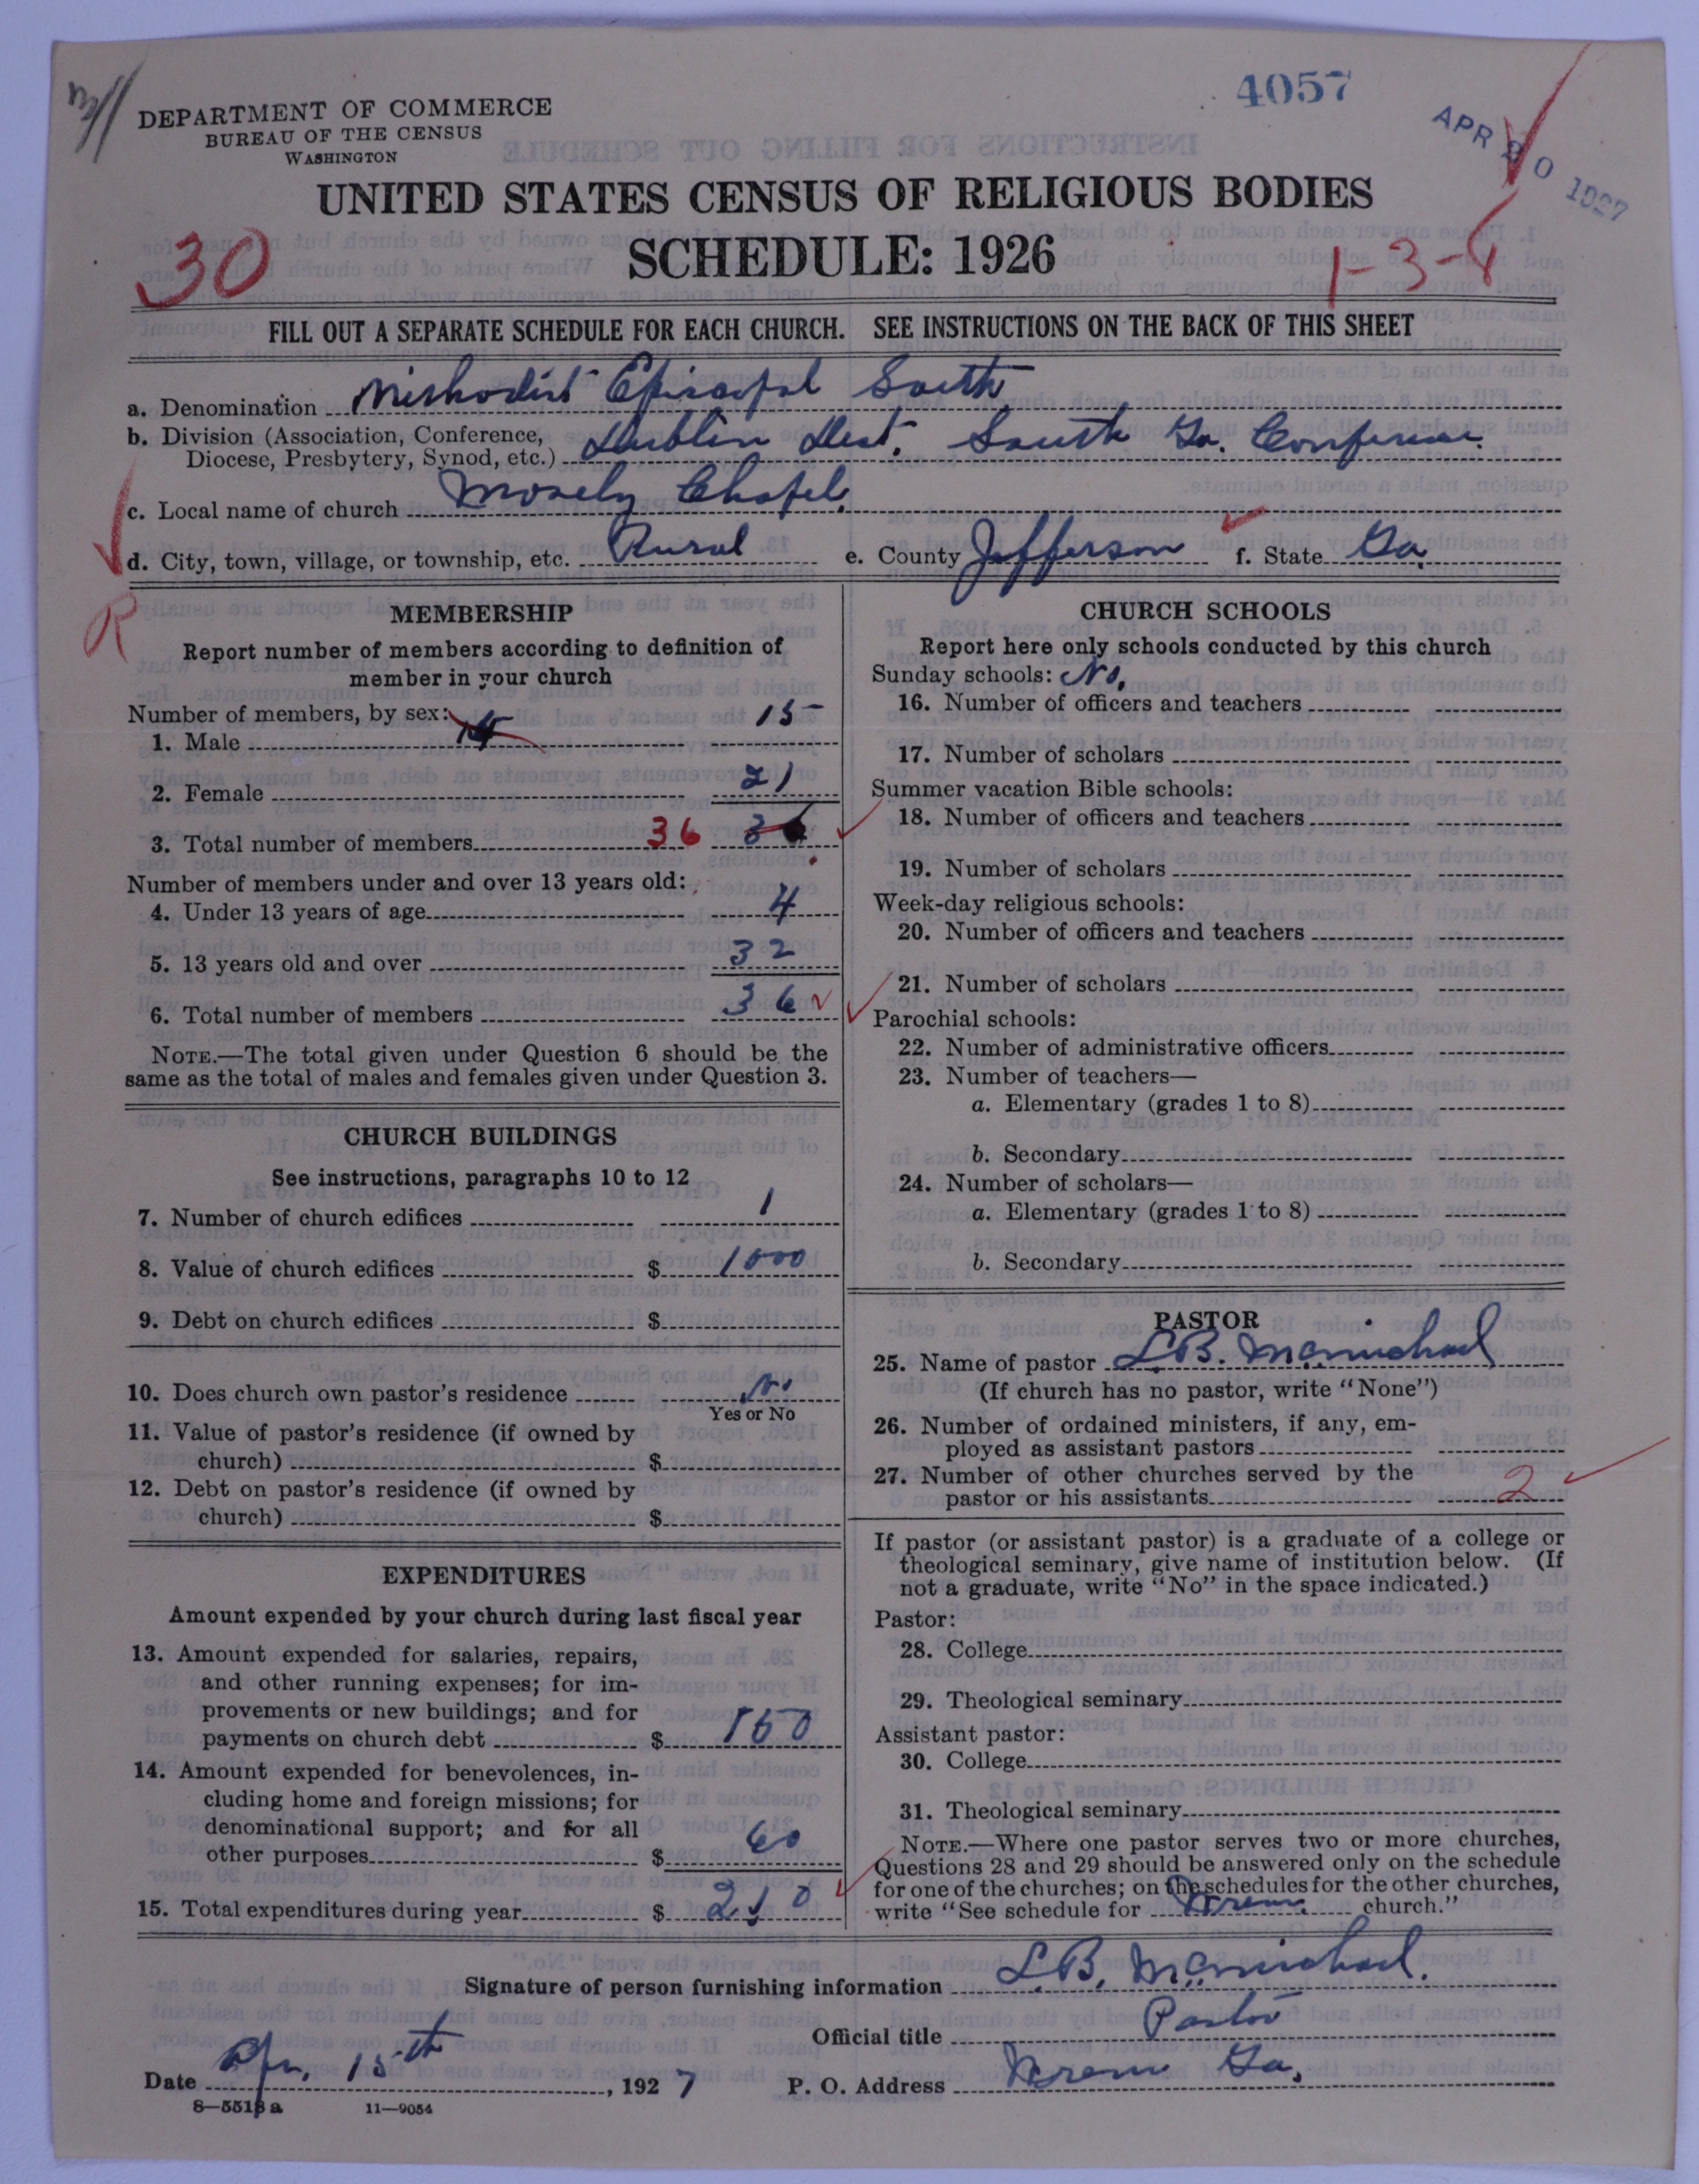 4057
APR 20 1927
DEPARTMENT OF COMMERCE
BUREAU OF THE CENSUS
WASHINGTON
UNITED STATES CENSUS OF RELIGIOUS BODIES
30
SCHEDULE: 1926
1-3-4
FILL OUT A SEPARATE SCHEDULE FOR EACH CHURCH. SEE INSTRUCTIONS ON THE BACK OF THIS SHEET
a. Denomination Methodist Episcopal South
b. Division (Association, Conference, Diocese, Presbytery, Synod, etc.) Dublin Dist. South Ga. Conference
c. Local name of church Mosely Chapel
d. City, town, village, or township, etc. Rural e. County Jefferson f. State Ga.
R
MEMBERSHIP
Report number of members according to definition of
member in your church
Number of members, by sex:
1. Male 15
2. Female 21
3. Total number of members 36 36
Number of members under and over 13 years old:
4. Under 13 years of age 4
5. 13 years old and over 32
6. Total number of members 36
NOTE.—The total given under Question 6 should be the
same as the total of males and females given under Question 3.
CHURCH BUILDINGS
See instructions, paragraphs 10 to 12
7. Number of church edifices 1
8. Value of church edifices $ 1000
9. Debt on church edifices $
10. Does church own pastor's residence No
Yes or No
11. Value of pastor's residence (if owned by
church) $
12. Debt on pastor's residence (if owned by
church) $
EXPENDITURES
Amount expended by your church during last fiscal year
13. Amount expended for salaries, repairs,
and other running expenses; for im-
provements or new buildings; and for
payments on church debt $ 150
14. Amount expended for benevolences, in-
cluding home and foreign missions; for
denominational support; and for all
other purposes $ 60
15. Total expenditures during year $ 210
CHURCH SCHOOLS
Report here only schools conducted by this church
Sunday schools: No.
16. Number of officers and teachers
17. Number of scholars
Summer vacation Bible schools:
18. Number of officers and teachers
19. Number of scholars
Week-day religious schools:
20. Number of officers and teachers
21. Number of scholars
Parochial schools:
22. Number of administrative officers
23. Number of teachers—
a. Elementary (grades 1 to 8)
b. Secondary
24. Number of scholars—
a. Elementary (grades 1 to 8)
b. Secondary
PASTOR
25. Name of pastor L.B. McMichael
(If church has no pastor, write "None")
26. Number of ordained ministers, if any, em-
ployed as assistant pastors
27. Number of other churches served by the
pastor or his assistants 2
If pastor (or assistant pastor) is a graduate of a college or
theological seminary, give name of institution below. (If
not a graduate, write "No" in the space indicated.)
Pastor:
28. College
29. Theological seminary
Assistant pastor:
30. College
31. Theological seminary
NOTE.—Where one pastor serves two or more churches,
Questions 28 and 29 should be answered only on the schedule
for one of the churches; on the schedules for the other churches,
write "See schedule for Wrens church."
Signature of person furnishing information L.B. McMichael.
Official title Pastor
Date Apr. 15th, 1927 P. O. Address Wrens Ga.
8—5513 a 11—9054